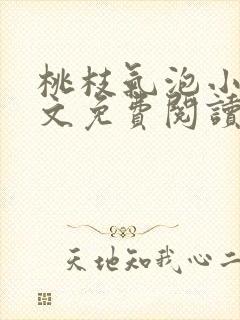 桃枝氣泡小
文免費閱讀
天地知我心二